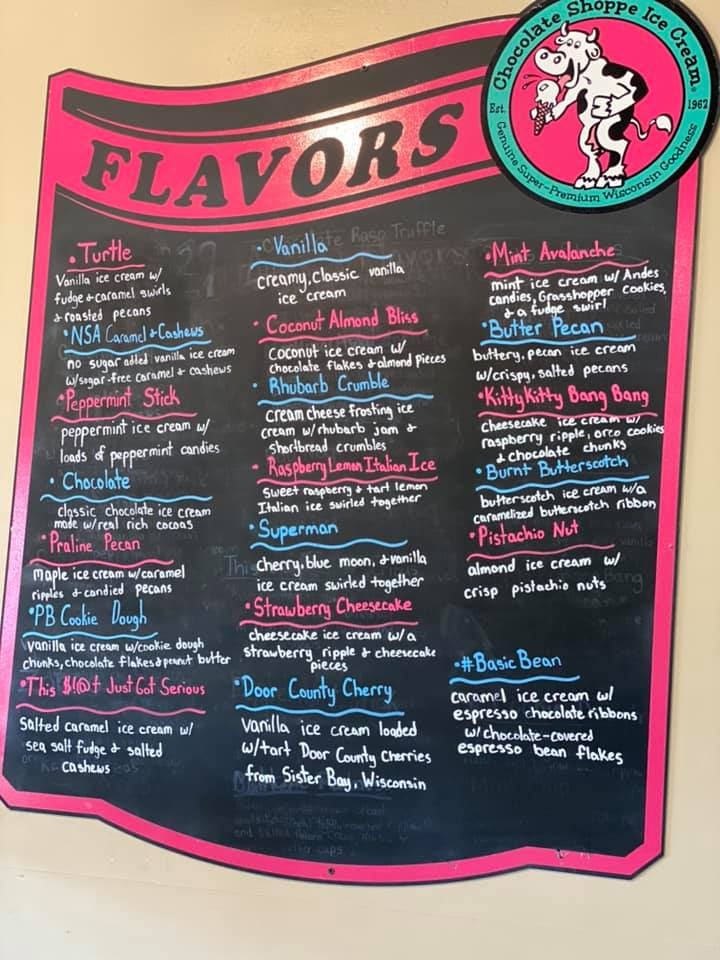 Chocolate Shoppe Ice Cream
Est. 1962
Genuine Super-Premium Wisconsin Goodness
FLAVORS
• Turtle
Vanilla ice cream w/
fudge & caramel swirls
& roasted pecans
• NSA Caramel & Cashews
no sugar added vanilla ice cream
w/sugar-free caramel & cashews
• Peppermint Stick
peppermint ice cream w/
loads of peppermint candies
• Chocolate
classic chocolate ice cream
made w/real rich cocoas
• Praline Pecan
maple ice cream w/caramel
ripples & candied pecans
• PB Cookie Dough
vanilla ice cream w/cookie dough
chunks, chocolate flakes & peanut butter
• This $!@t Just Got Serious
Salted caramel ice cream w/
sea salt fudge & salted
cashews
• Vanilla
creamy, classic vanilla
ice cream
• Coconut Almond Bliss
Coconut ice cream w/
chocolate flakes & almond pieces
• Rhubarb Crumble
cream cheese frosting ice
cream w/rhubarb jam &
shortbread crumbles
• Raspberry Lemon Italian Ice
Sweet raspberry & tart lemon
Italian ice swirled together
• Superman
cherry, blue moon, & vanilla
ice cream swirled together
• Strawberry Cheesecake
cheesecake ice cream w/a
strawberry ripple & cheesecake
pieces
• Door County Cherry
Vanilla ice cream loaded
w/tart Door County Cherries
from Sister Bay, Wisconsin
• Mint Avalanche
mint ice cream w/ Andes
candies, Grasshopper cookies,
& a fudge swirl
• Butter Pecan
buttery, pecan ice cream
w/crispy, salted pecans
• Kitty Kitty Bang Bang
cheesecake ice cream w/
raspberry ripple, oreo cookies
& chocolate chunks
• Burnt Butterscotch
butterscotch ice cream w/a
caramelized butterscotch ribbon
• Pistachio Nut
almond ice cream w/
crisp pistachio nuts
• #Basic Bean
caramel ice cream w/
espresso chocolate ribbons
w/chocolate-covered
espresso bean flakes